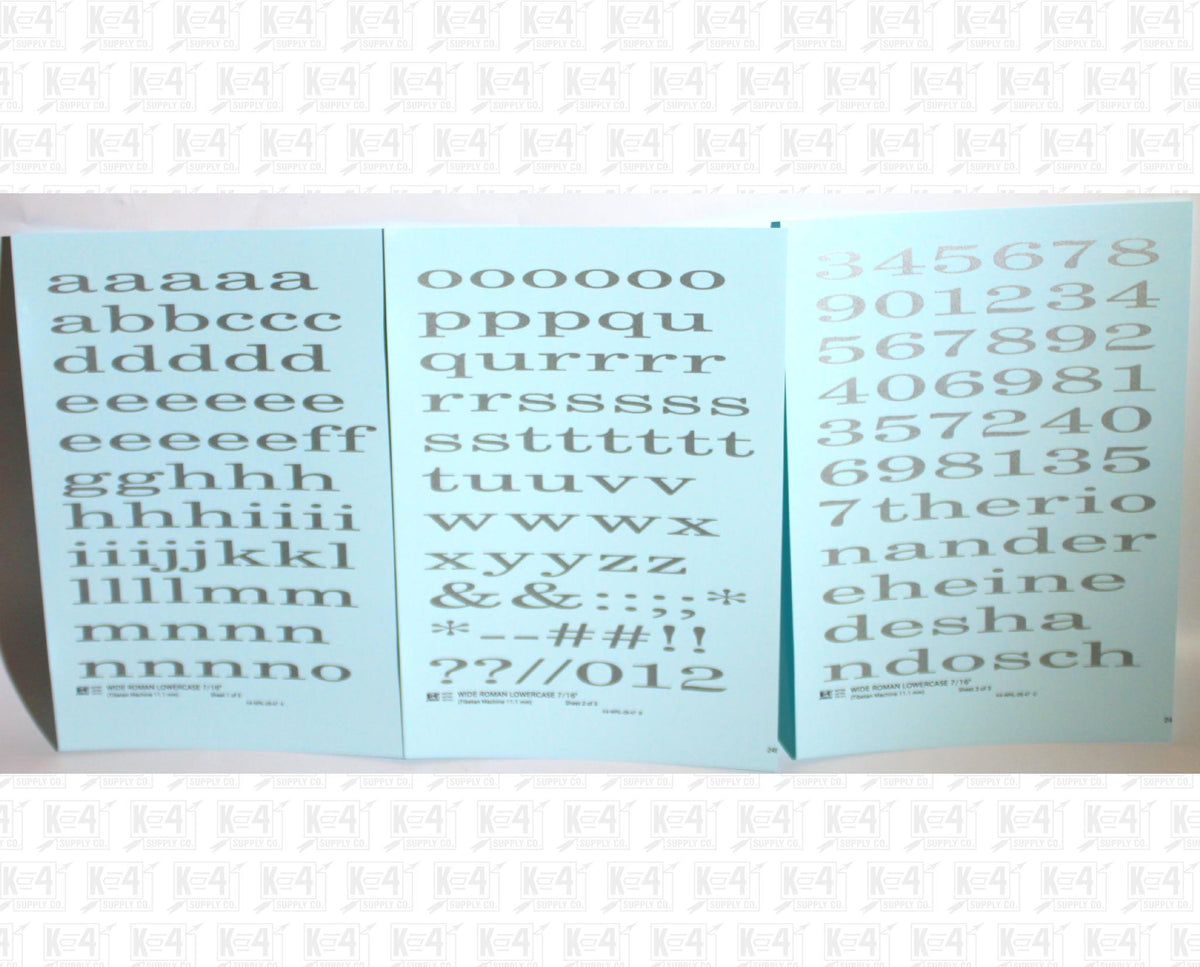 aaaaa
abbccc
ddddd
eeeeee
eeeeeff
gghhh
hhhiiii
iiijjkkl
llllmm
mnnn
nnnno
WIDE ROMAN LOWERCASE 7/16"
(Tibetan Machine 11.1 mm) Sheet 1 of 3
oooooo
pppqu
qurrrr
rrsssss
sstttttt
tuuvv
wwwx
xyyzz
&&::;;*
*--##!!
??//012
WIDE ROMAN LOWERCASE 7/16"
(Tibetan Machine 11.1 mm) Sheet 2 of 3
345678
901234
567892
406981
357240
698135
7therio
nander
eheine
desha
ndosch
WIDE ROMAN LOWERCASE 7/16"
(Tibetan Machine 11.1 mm) Sheet 3 of 3
K-4
SUPPLY CO.